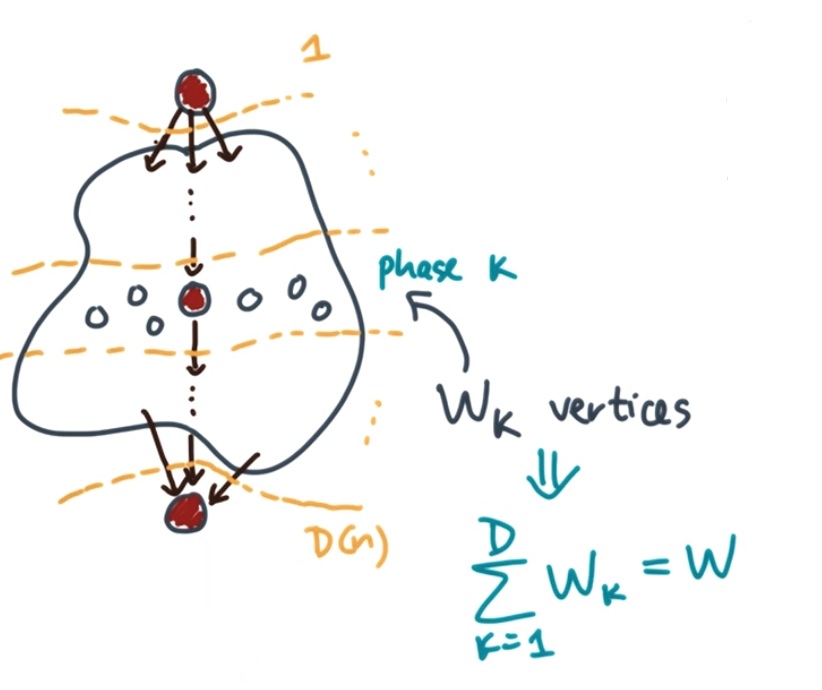 1
phase K
W_K vertices
⇓
D(n)
D
∑ W_K = W
K=1